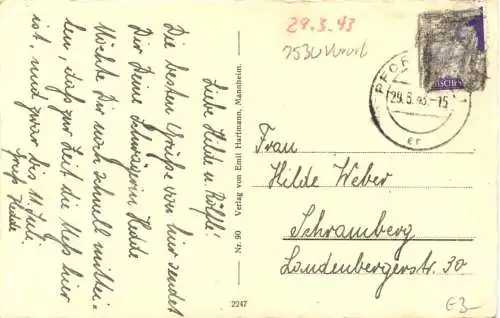 Liebe Hilde u. Rölfle!
Die besten Grüße von hier sendet
Dir Deine Schwägerin Hedde
Möchte Dir noch schnell mittei-
len, daß zur Zeit die Meß hier
ist, und zwar bis 11. Juli.
Gruß Hedde
Nr. 90 Verlag von Emil Hartmann, Mannheim.
2247
29.3.43
PFOR
29.6.43.-15
ISCHES
Frau
Hilde Weber
Schramberg
Landenbergerstr. 30
E3-